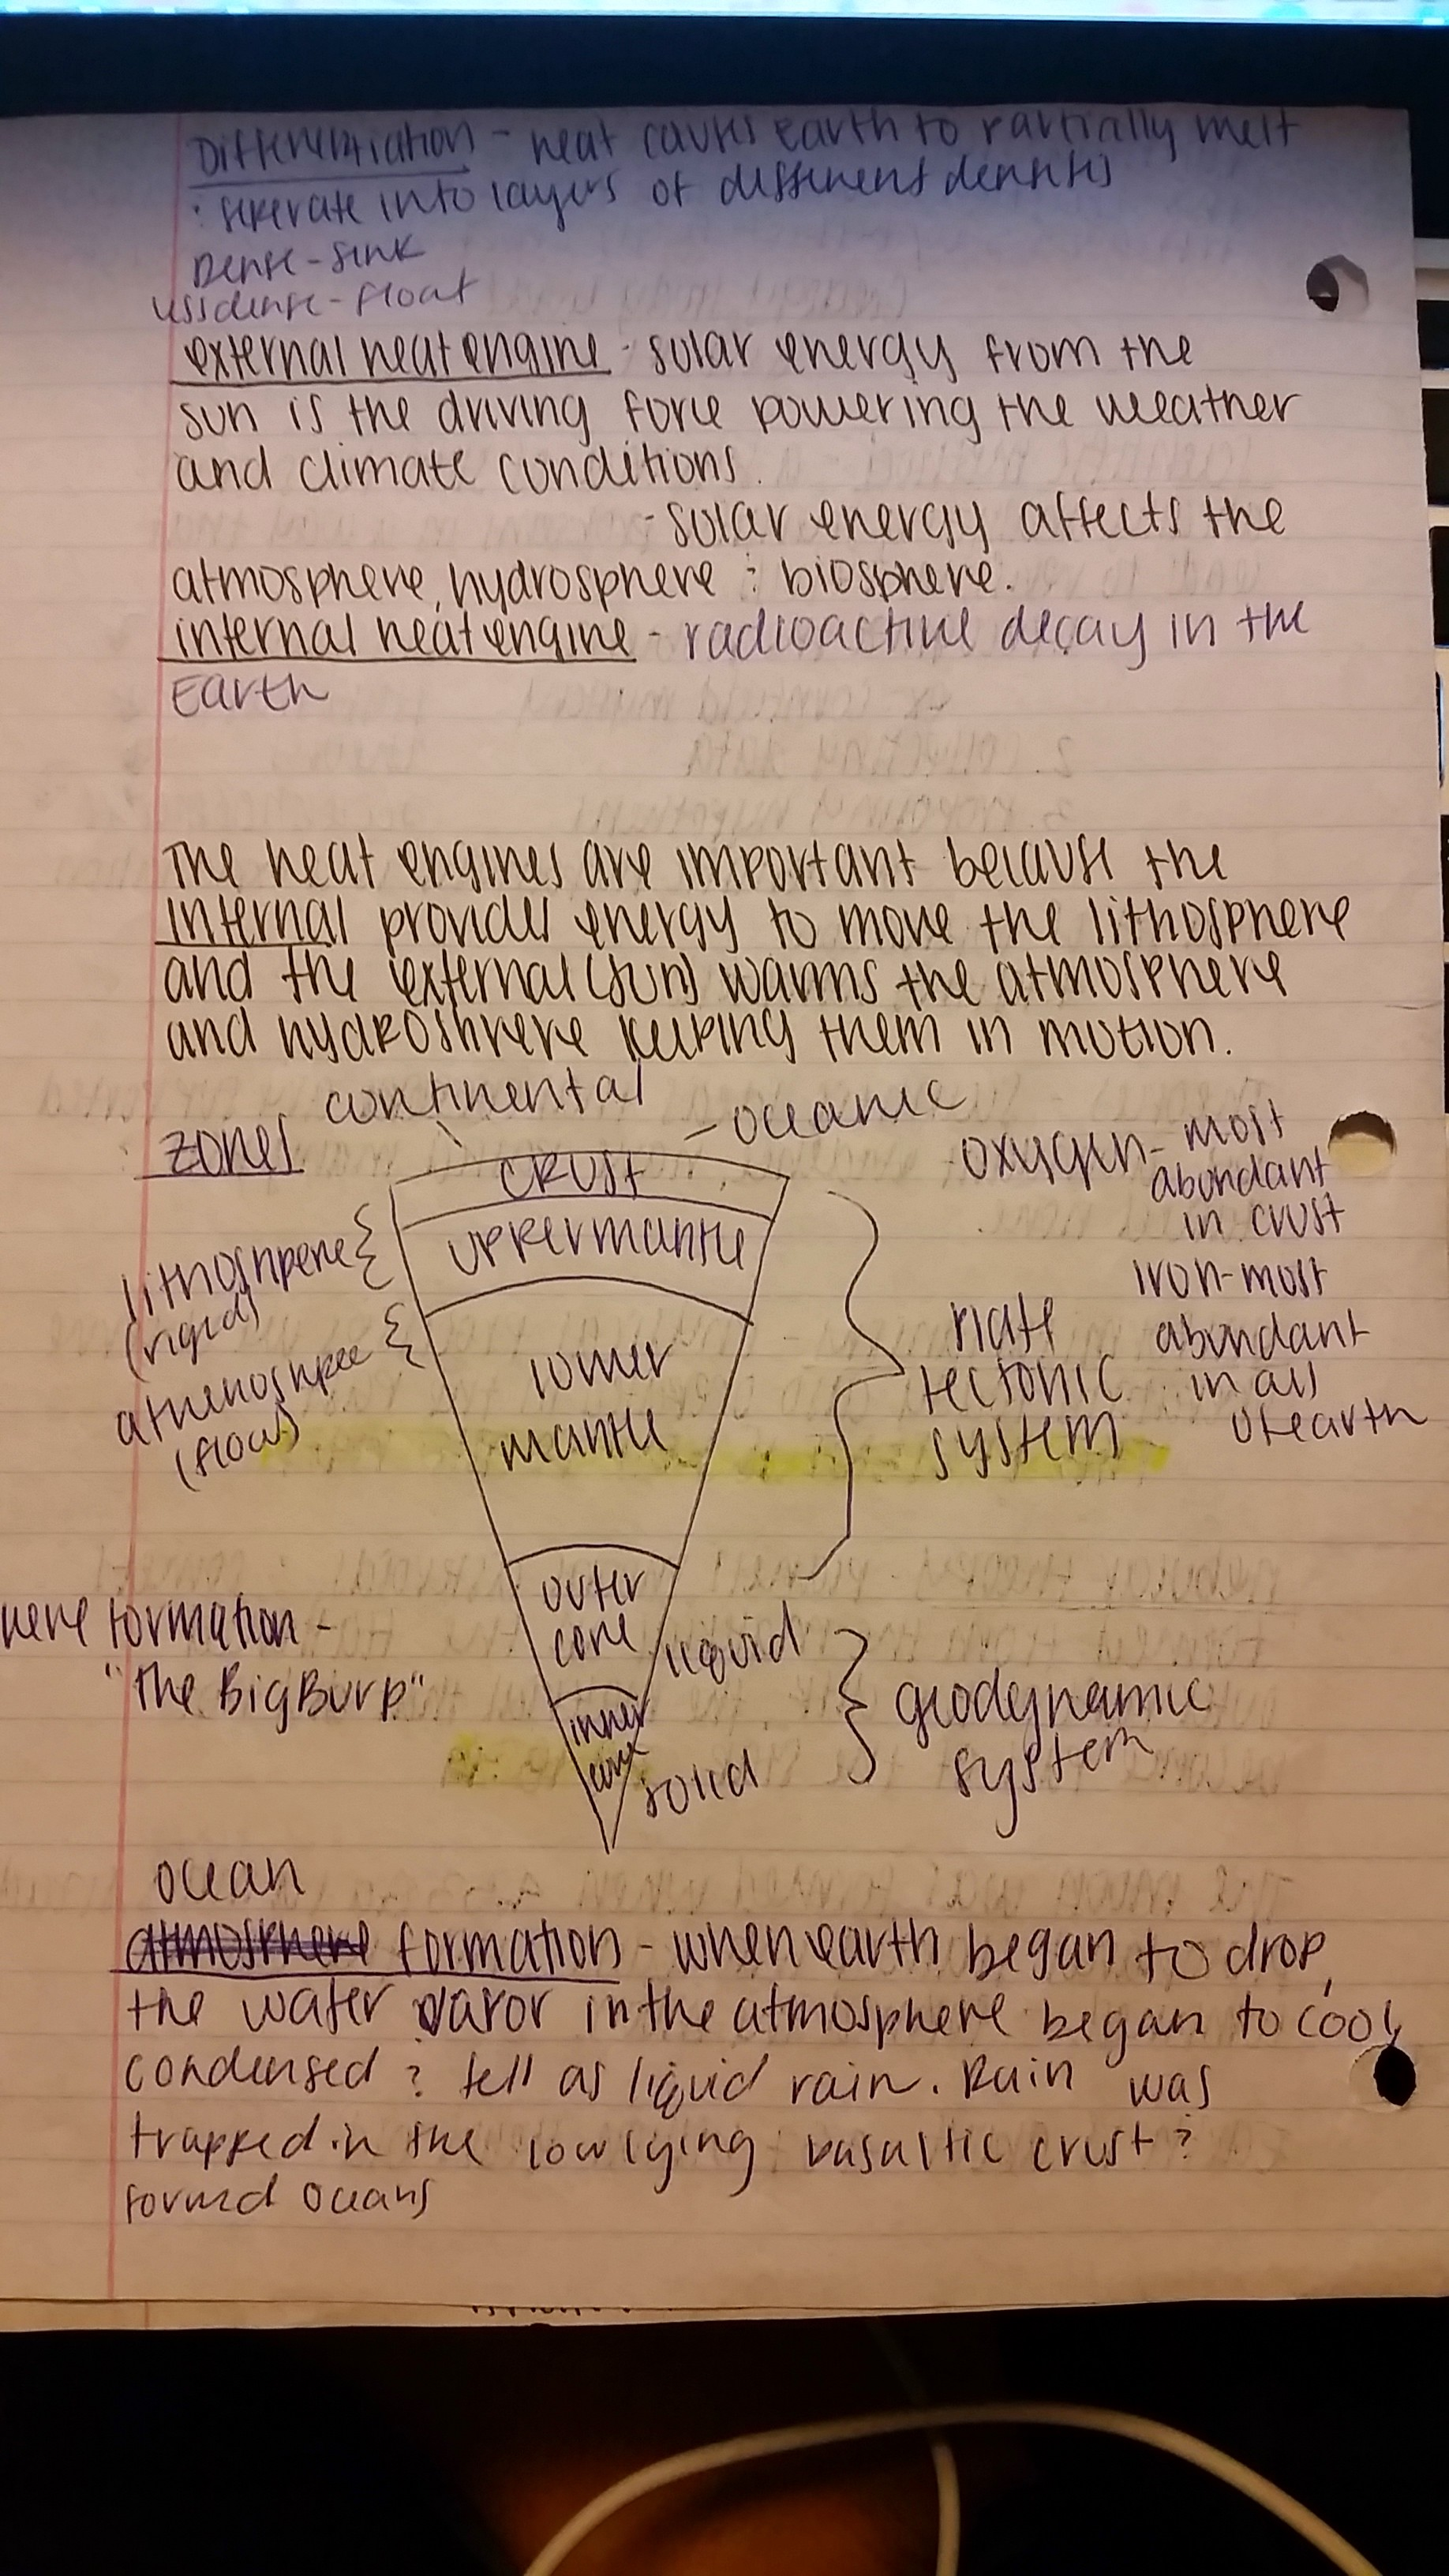 Differentiation - heat causes earth to partially melt
: seperate into layers of different densitis
Dense - sink
less dense - float
external heat engine - solar energy from the
sun is the driving force powering the weather
and climate conditions.
- solar energy affects the
atmosphere, hydrosphere : biosphere.
internal heat engine - radioactive decay in the
Earth
The heat engines are important because the
internal provides energy to move the lithosphere
and the external (sun) warms the atmosphere
and hydroshere keeping them in motion.
zones
continental
- oceanic
crust
upper mantle
lower
mantle
outer
core
inner
core
lithoshpere
(rigid)
athenoshpee
(flow)
plate
tectonic
system
oxygen - most
abondant
in crust
iron - most
abundant
in all
of earth
liquid
solid
geodynamic
system
here formation -
"The Big Burp"
ocean
atmosphere formation - when earth began to drop,
the water vapor in the atmosphere began to cool,
condensed ? fell as liquid rain. Rain was
trapped in the low lying basaltic crust ?
formed oceans